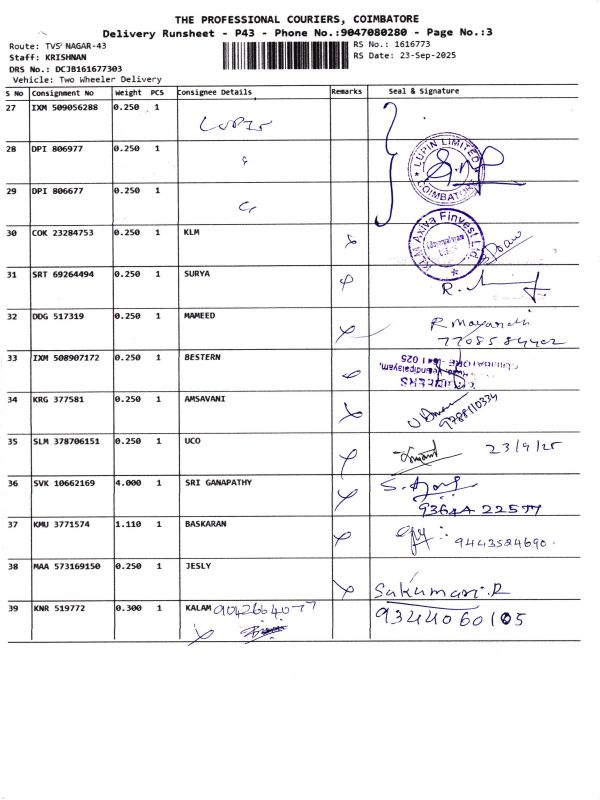 THE PROFESSIONAL COURIERS, COIMBATORE
Delivery Runsheet - P43 - Phone No.:9047080280 - Page No.:3
Route: TVS NAGAR-43
RS No.: 1616773
Staff: KRISHNAN
RS Date: 23-Sep-2025
DRS No.: DC3B161677303
Vehicle: Two Wheeler Delivery
S No Consignment No Weight PCS Consignee Details Remarks Seal & Signature
27 IXM 509056288 0.250 1 LUPIN
28 DPI 806977 0.250 1
LUPIN LIMITED
COIMBATORE
29 DPI 806677 0.250 1
30 COK 23284753 0.250 1 KLM
KLM Axiva Finvest Ltd.
31 SRT 69264494 0.250 1 SURYA
R.
32 DDG 517319 0.250 1 MAMEED
R Mayandi
7708584402
33 IXM 508907172 0.250 1 BESTERN
COIMBATORE - 641 025
34 KRG 377581 0.250 1 AMSAVANI
9788110334
35 SLM 378706151 0.250 1 UCO
23/9/25
36 SVK 10662169 4.000 1 SRI GANAPATHY
37 KMU 3771574 1.110 1 BASKARAN
9443524690.
38 MAA 573169150 0.250 1 JESLY
Sukumari.R
39 KNR 519772 0.300 1 KALAM 9042664077
9344060105